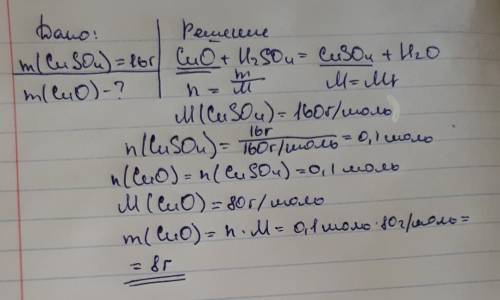 Дано:
m(CuSO₄)=16г
m(CuO)-?
Решение
CuO + H₂SO₄ = CuSO₄ + H₂O
n = m/M
M = Mr
M(CuSO₄) = 160г/моль
n(CuSO₄) = 16г/160г/моль = 0,1 моль
n(CuO) = n(CuSO₄) = 0,1 моль
M(CuO) = 80г/моль
m(CuO) = n · M = 0,1 моль · 80г/моль =
= 8г